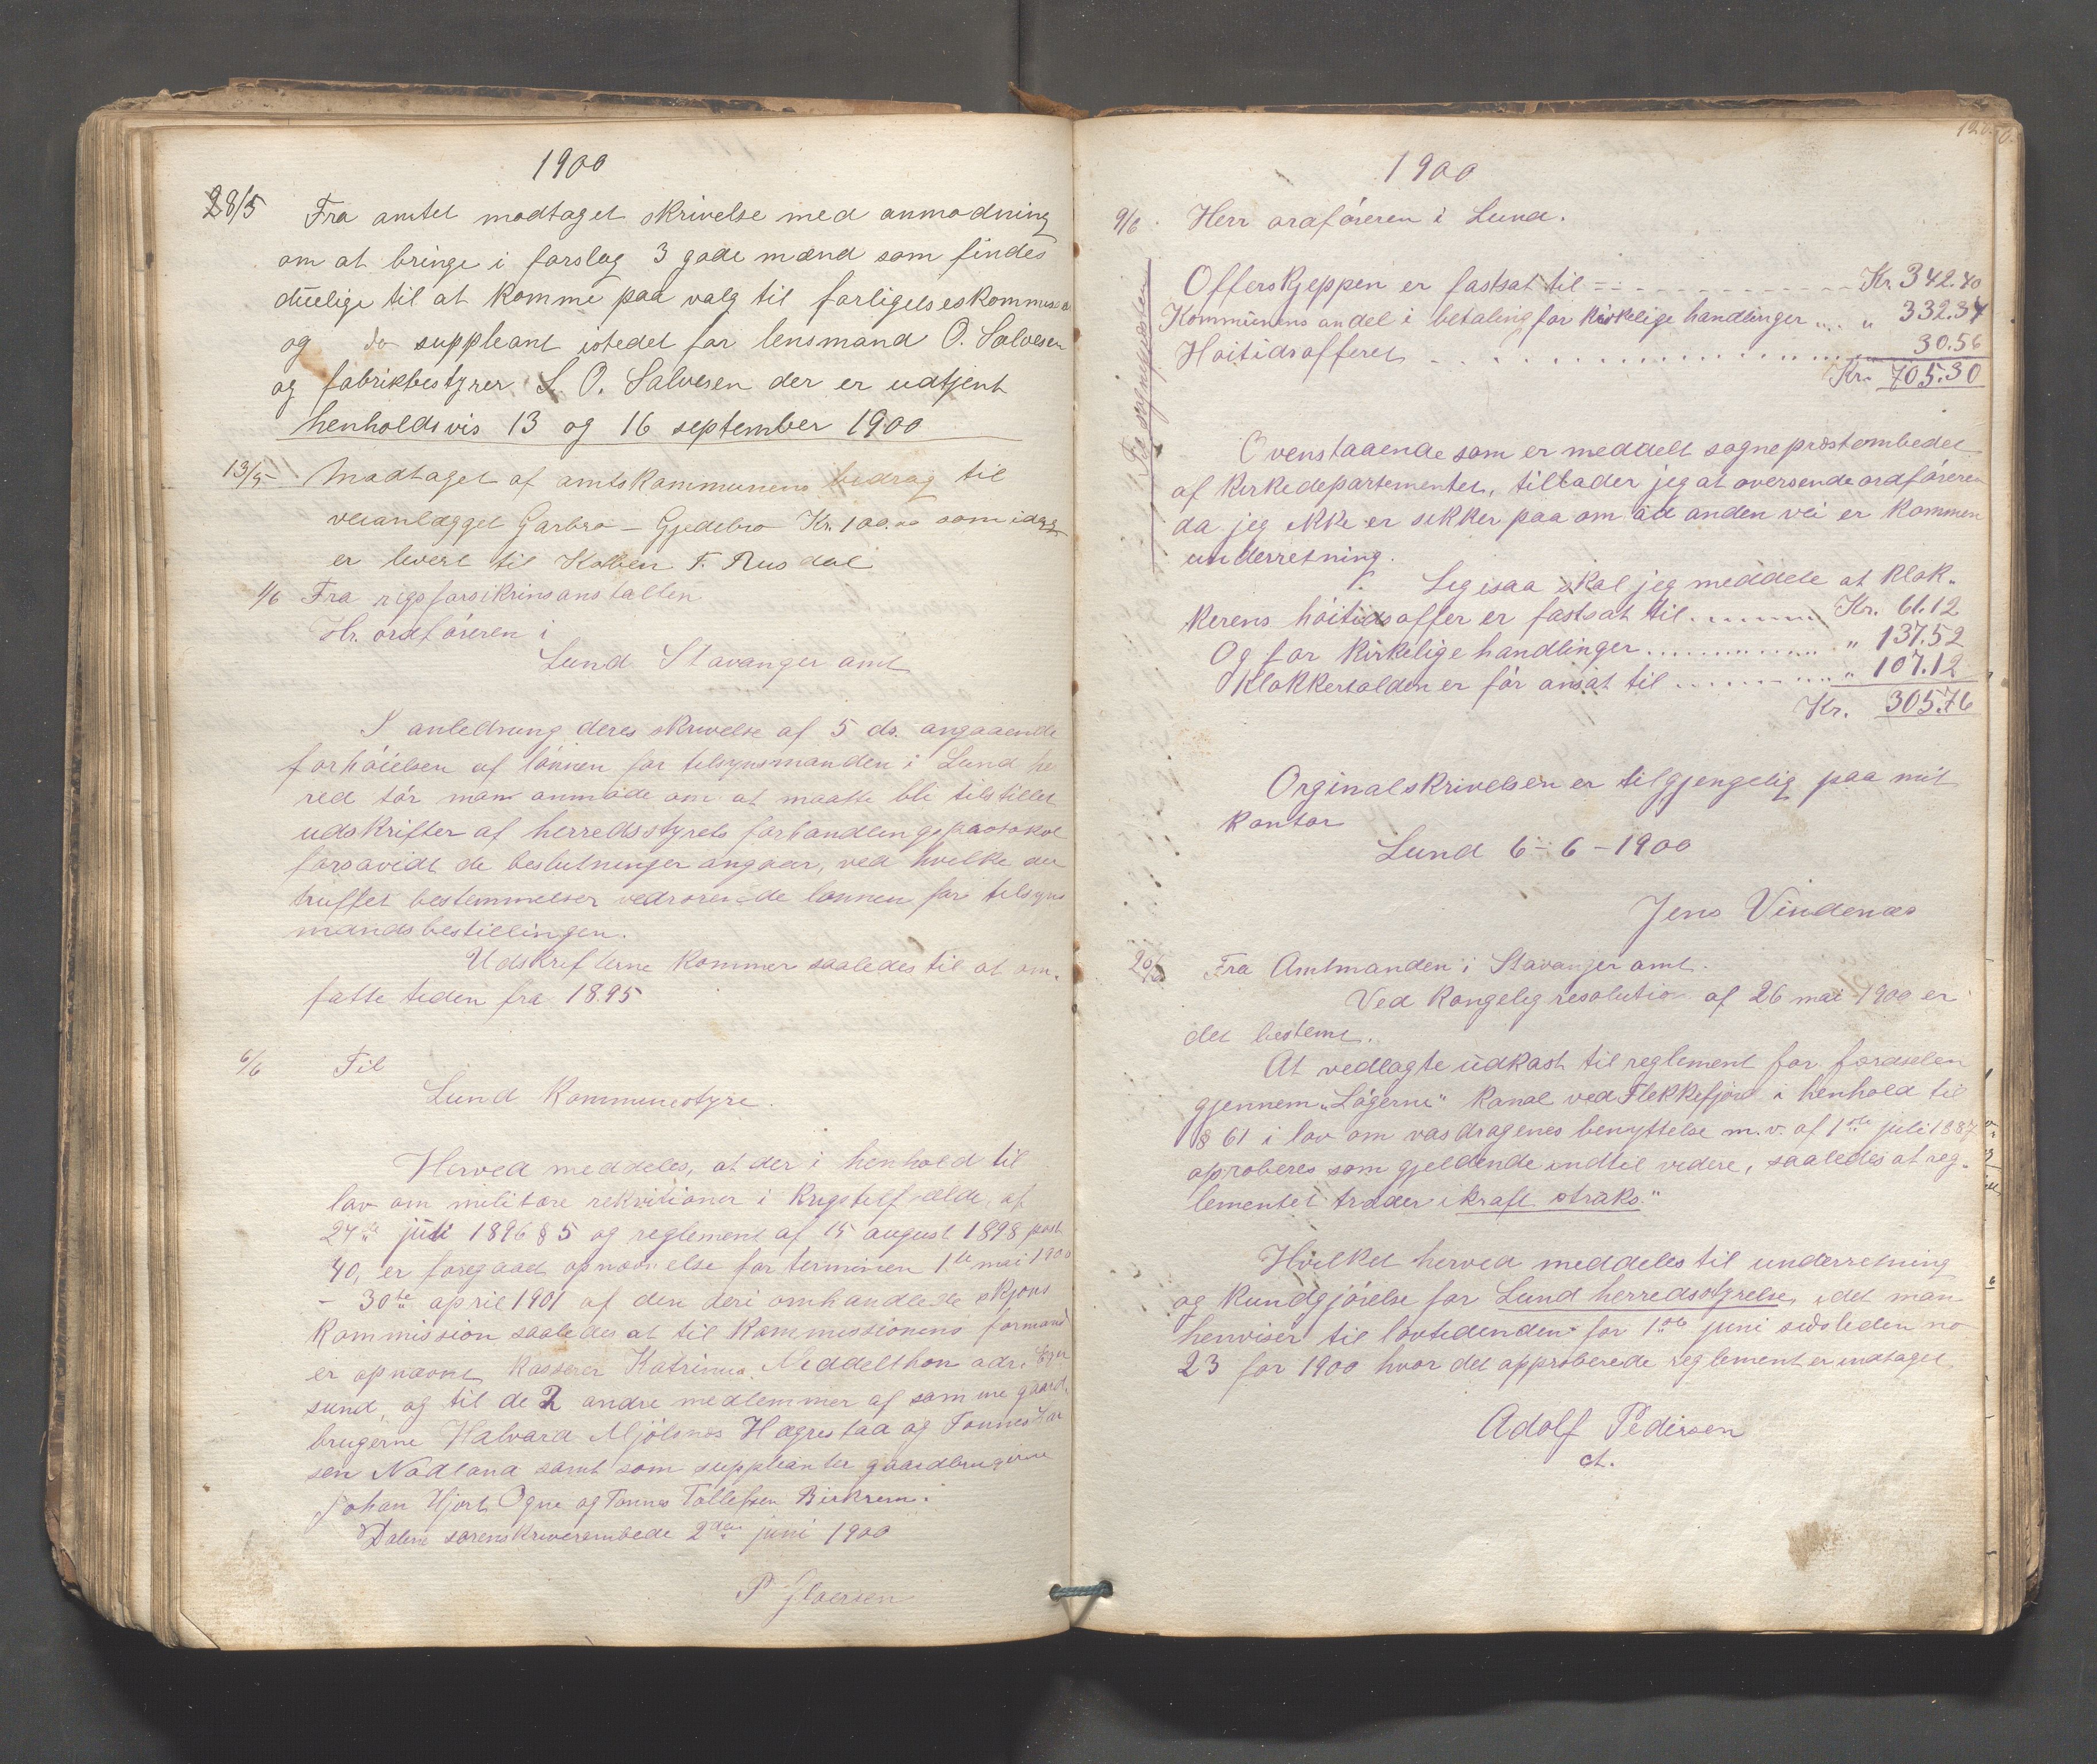 1900
28/5 Fra amtet modtaget skrivelse med anmodning
om at bringe i forslag 3 gode mænd som findes
duelige til at komme paa valg til forligelseskommis
og do suppleant istedet for lensmand O. Salvesen
og fabrikbestyrer S. O. Salvesen der er udtjent
henholdsvis 13 og 16 september 1900
13/5 Modtaget af amtskommunens bedrag til
veianlægget Garbro - Gjedebro Kr. 100.00 som idag
er levert til F. Rusdal
1/6 Fra rigsforsikrinsanstalten
Hr. ordføreren i
Lund Stavanger amt
I anledning deres skrivelse af 5 ds. angaaende
forhøielsen af lønnen for tilsynsmanden i Lund he
red tør man anmode om at maatte bli tilstillet
udskrifter af herredsstyrets forhandlingsprotokol
forsavidt de beslutninger angaar, ved hvilke der
truffet bestemmelser vedrørende lønnen for tilsyns
mandsbestillingen.
Udskrifterne kommer saaledes til at om-
fatte tiden fra 1895
6/6 Til
Lund Kommunestyre.
Herved meddeles, at der i henhold til
lov om militære rekvitioner i krigstilfælde af
27de juli 1896 § 5 og reglement af 15 august 1898 post
40, er foregaaet opnævnelse for terminen 1te mai 1900
- 30te april 1901 af den deri omhandlede skjøns
kommission saaledes at til kommissionens formand
er opnævnt kasserer Katrinus Meddelthon adr. Eger
sund, og til de 2 andre medlemmer af samme gaard
brugerne Halvard Mjølsnes Hægrestaa og Tønnes Lar
sen Nodland samt som suppleanter gaardbrugerne
Johan Hjort Ogne og Tønnes Tollefsen Birkrem.
Dalene sorenskriverembede 2den juni 1900
P Gloersen
1900
9/6 Herr ordføreren i Lund.
Til sognepresten
Offerskjeppen er fastsat til Kr. 342.40
Kommunens andel i betaling for kirkelige handlinger " 332.34
Høitidsofferet 30.56
Kr. 705.30
Ovenstaaende som er meddelt sogneprestembedet
af kirkedepartementet, tillader jeg at oversende ordføreren
da jeg ikke er sikker paa om ad anden vei er kommen
underretning.
Ligesaa skal jeg meddele at klok-
kerens høitidsoffer er fastsat til Kr. 61.12
Og for kirkelige handlinger " 137.52
Klokkertolden er før ansat til " 107.12
Kr. 305.76
Orginalskrivelsen er tilgjengelig paa mit
kontor
Lund 6-6-1900
Jens Vindenæs
20/6 Fra Amtmanden i Stavanger amt.
Ved kongelig resolutio af 26 mai 1900 er
det bestemt.
At vedlagte udkast til reglement for færdselen
gjennem "Løgerne" kanal ved Flekkefjord i henhold til
§ 61 i lov om vasdragenes benyttelse m.v. af 1ste juli 1887
approberes som gjeldende indtil videre, saaledes at reg-
lementet træder i kraft straks."
Hvilket herved meddeles til underretning
og kundgjørelse for Lund herredsstyrelse, idet man
henviser til lovtidenden for 1ste juni sidstleden no
23 for 1900 hvor det approberede reglement er indtaget
Adolf Pedersen
ct.